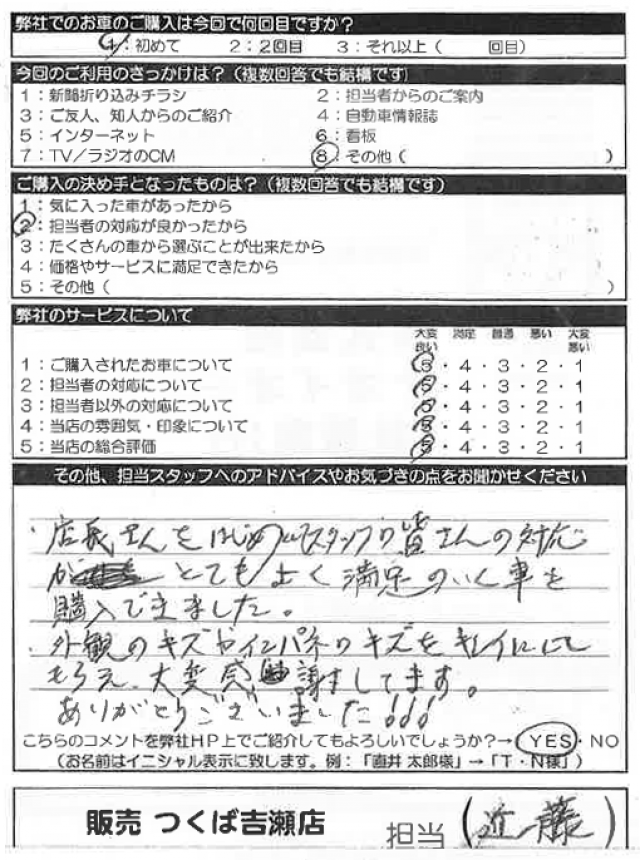 弊社でのお車のご購入は今回で何回目ですか?
1:初めて 2:2回目 3:それ以上( 回目)
今回のご利用のきっかけは?(複数回答でも結構です)
1:新聞折り込みチラシ 2:担当者からのご案内
3:ご友人、知人からのご紹介 4:自動車情報誌
5:インターネット 6:看板
7:TV/ラジオのCM 8:その他( )
ご購入の決め手となったものは?(複数回答でも結構です)
1:気に入った車があったから
2:担当者の対応が良かったから
3:たくさんの車から選ぶことが出来たから
4:価格やサービスに満足できたから
5:その他( )
弊社のサービスについて
大変良い 満足 普通 悪い 大変悪い
1:ご購入されたお車について 5・4・3・2・1
2:担当者の対応について 5・4・3・2・1
3:担当者以外の対応について 5・4・3・2・1
4:当店の雰囲気・印象について 5・4・3・2・1
5:当店の総合評価 5・4・3・2・1
その他、担当スタッフへのアドバイスやお気づきの点をお聞かせください
・店長さんをはじめスタッフの皆さんの対応
がとてもよく満足のいく車を
購入できました。
・外観のキズやインパネのキズをキレイにして
もらえ、大変感謝してます。
ありがとうございました!!!
こちらのコメントを弊社HP上でご紹介してもよろしいでしょうか?→ YES・NO
(お名前はイニシャル表示に致します。例:「直井 太郎様」→「T・N様」)
販売 つくば吉瀬店 担当(近藤)